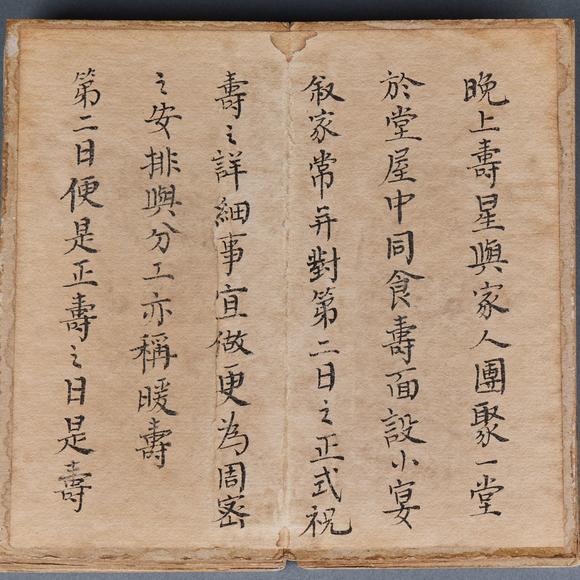 晚上壽星與家人團聚一堂
於堂屋中同食壽面設小宴
敘家常并對第二日之正式祝
壽之詳細事宜做更為周密
之安排與分工亦稱暖壽
第二日便是正壽之日是壽